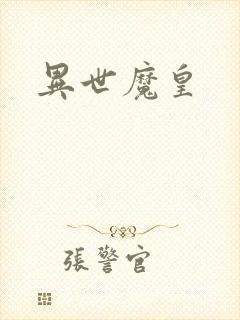 異世魔皇
張警官